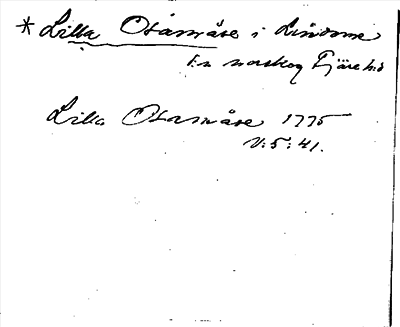 * Lilla Osamåse i Lindome
sn norskog Fjäre hd
Lilla Osamåse 1775
V: 5: 41.